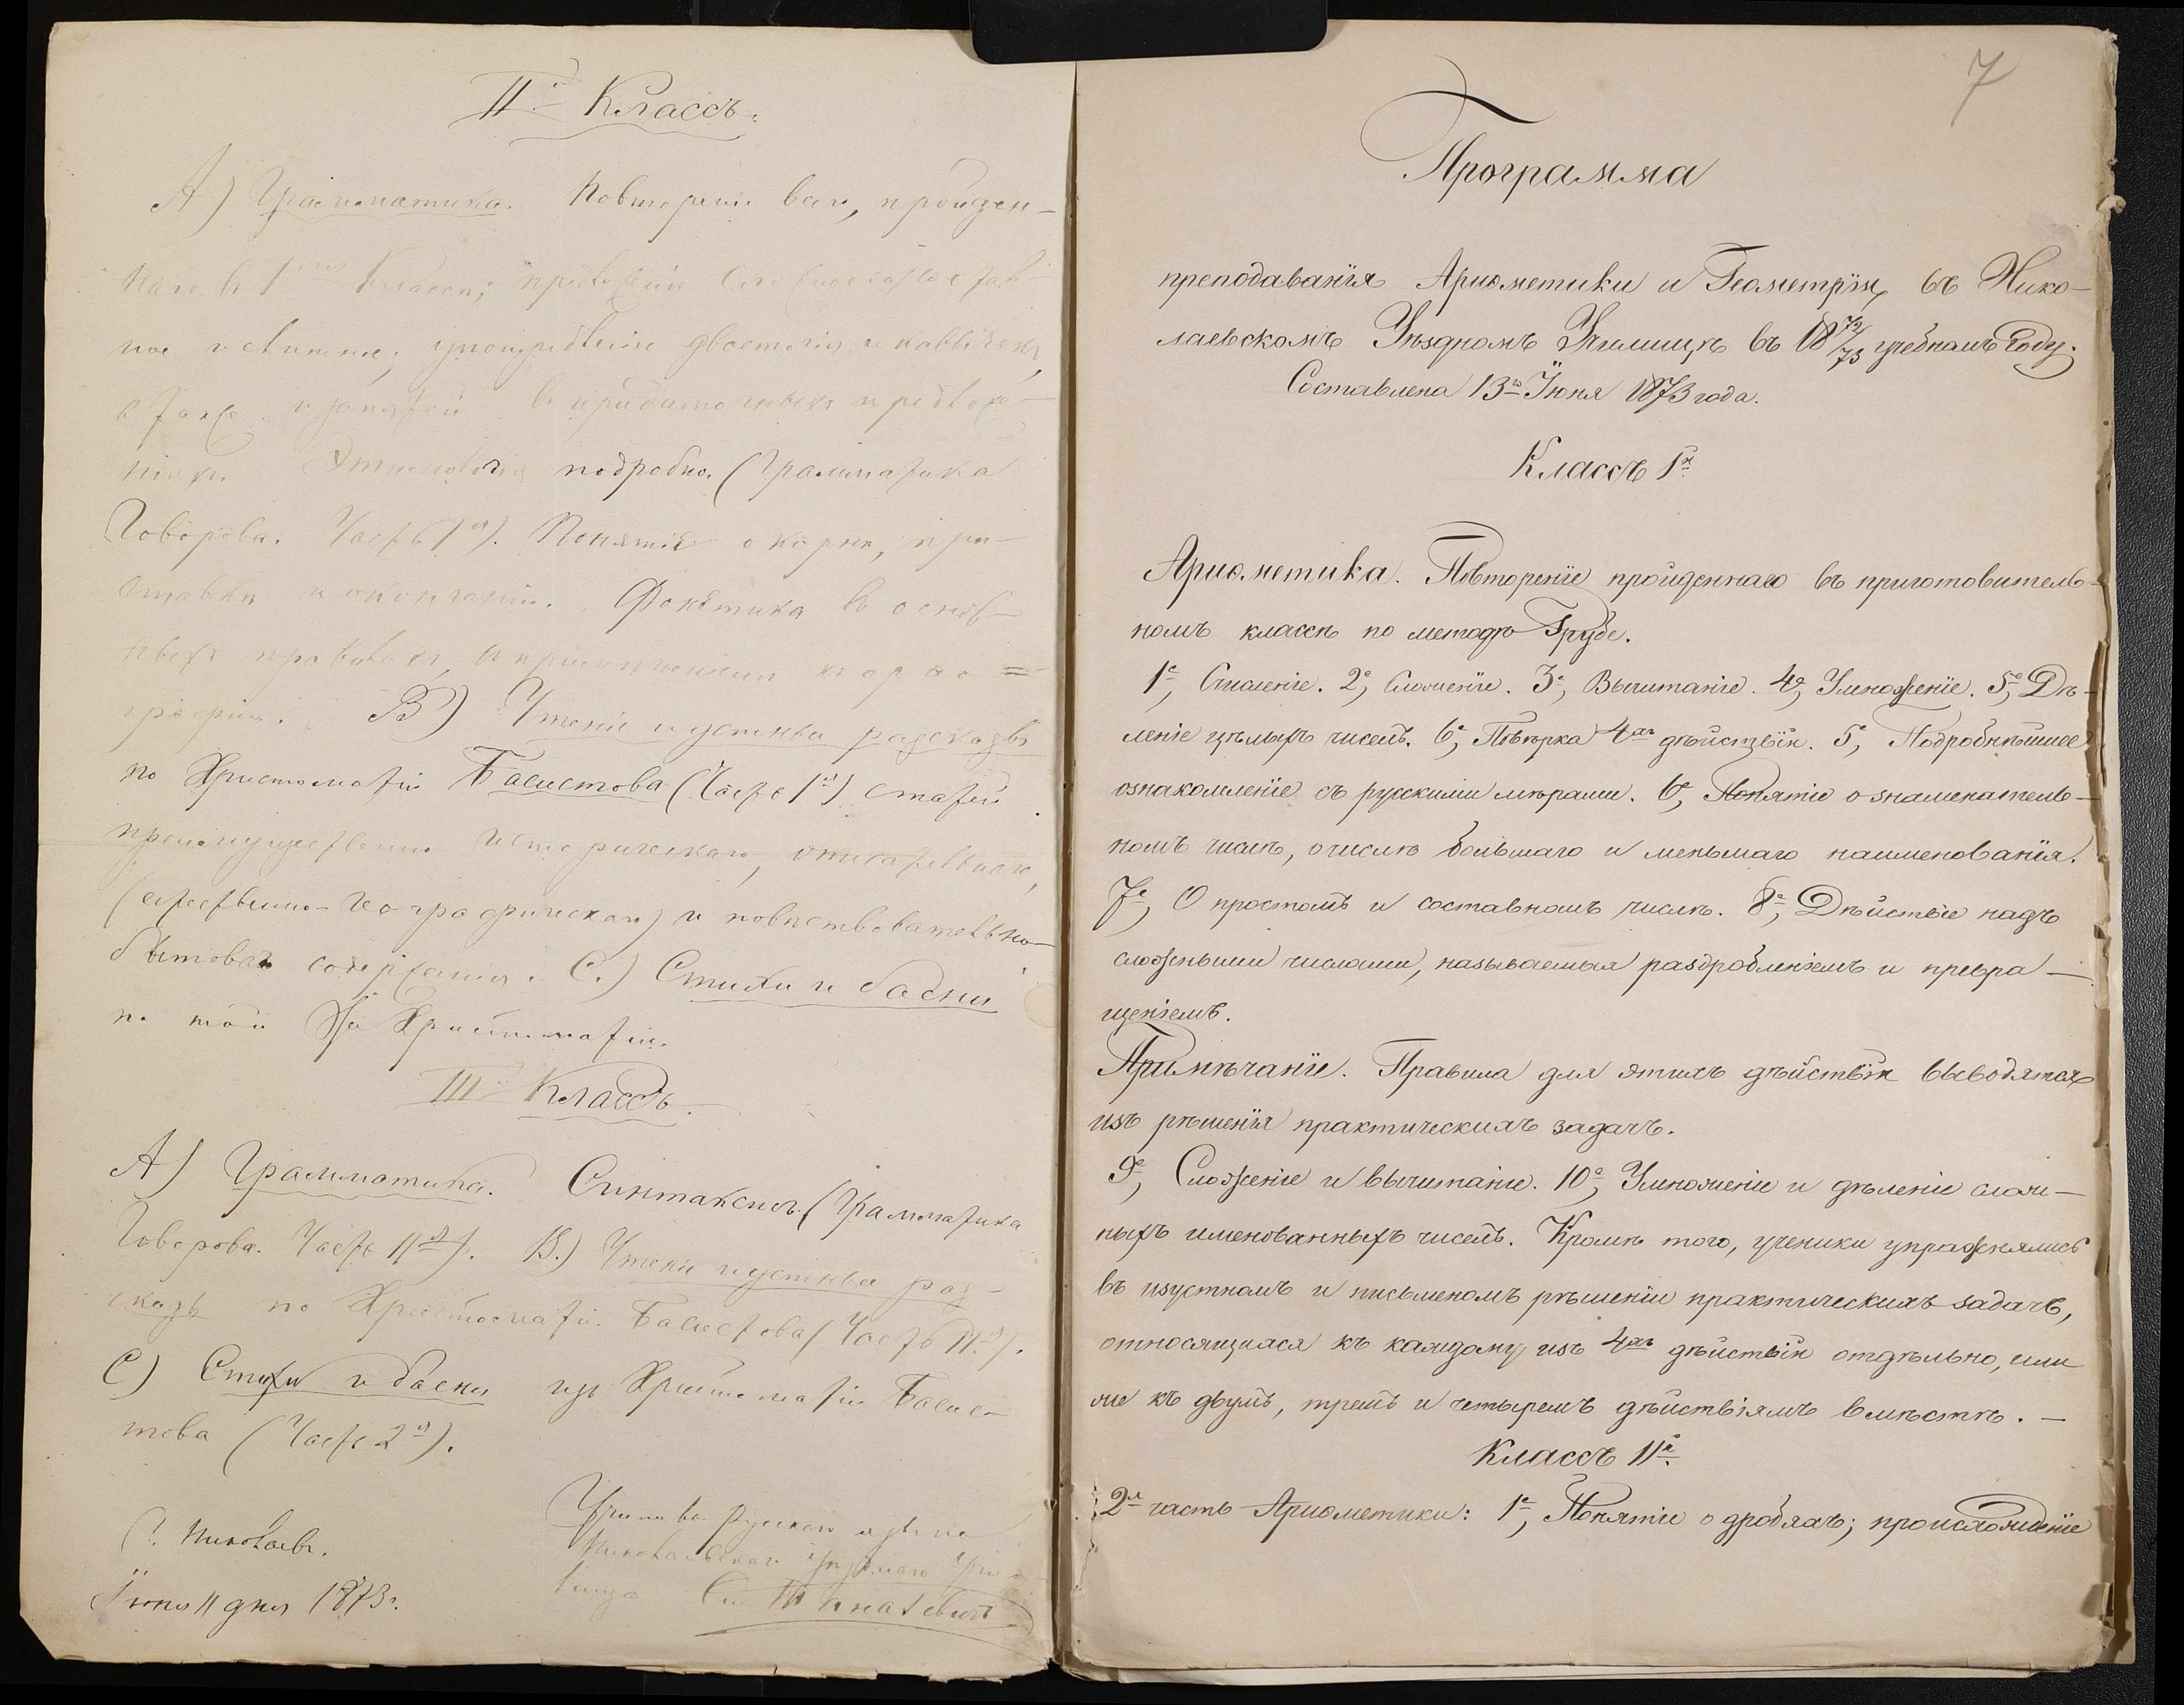 IIй Классъ.
А) Грамматика. Повтореніе всего, пройден-
наго въ 1мъ Классѣ; предложеніе
употребленіе двоеточія и кавычекъ,
а также и запятой въ придаточныхъ предложе-
ніяхъ. Этимологія подробно. (Грамматика
Говорова. Часть 1я). Понятіе о корнѣ, при-
ставкѣ и окончаніи. Фонетика въ основ-
ныхъ правилахъ, съ примѣненіемъ къ орѳо=
графіи. В) Чтеніе и устные разсказы
по Христоматіи Басистова (Часть 1я) статей
преимущественно историческаго, описательнаго,
(естественно-географическаго) и повѣствовательно-
бытоваго содержанія. С.) Стихи и басни
по той же Христоматіи.
III Классъ.
А) Грамматика. Синтаксисъ. (Грамматика
Говорова. Часть IIя). В.) Чтеніе и устные раз-
сказы по Христоматіи Басистова (Часть IIя).
С) Стихи и басни изъ Христоматіи Басис-
това (Часть 2я).
Г. Николаевъ.
Іюня 11 дня 1873 г.
Учитель Русскаго языка
Николаевскаго Уѣзднаго Учи-
лища
7
Программа
преподаванія Ариѳметики и Геометріи въ Нико-
лаевскомъ Уѣздномъ Училищѣ въ 18 72/73 учебномъ году.
Составлена 13го Іюня 1873 года.
Классъ 1й
Ариѳметика. Повтореніе пройденнаго въ приготовитель-
номъ классѣ по методѣ Грубе.
1е, Счисленіе. 2е, Сложеніе. 3е, Вычитаніе. 4е, Умноженіе. 5е, Дѣ-
леніе цѣлыхъ чиселъ. 6е, Повѣрка 4хъ дѣйствій. 5е, Подробнѣйшее
ознакомленіе съ русскими мѣрами. 6е, Понятіе о знаменатель-
номъ числѣ, о числѣ большаго и меньшаго наименованія.
7е, О простомъ и составномъ числѣ. 8е, Дѣйствіе надъ
сложными числами, называемыя раздробленіемъ и превра-
щеніемъ.
Примѣчаніе. Правила для этихъ дѣйствій выводятся
изъ рѣшенія практическихъ задачъ.
9е, Сложеніе и вычитаніе. 10е, Умноженіе и дѣленіе слож-
ныхъ именованныхъ чиселъ. Кромѣ того, ученики упражнялись
въ изустномъ и письменомъ рѣшеніи практическихъ задачъ,
относящихся къ каждому изъ 4хъ дѣйствій отдѣльно, или
же къ двумъ, тремъ и четыремъ дѣйствіямъ вмѣстѣ. —
Классъ IIй
2я часть Ариѳметики: 1е, Понятіе о дробяхъ; происхожденіе